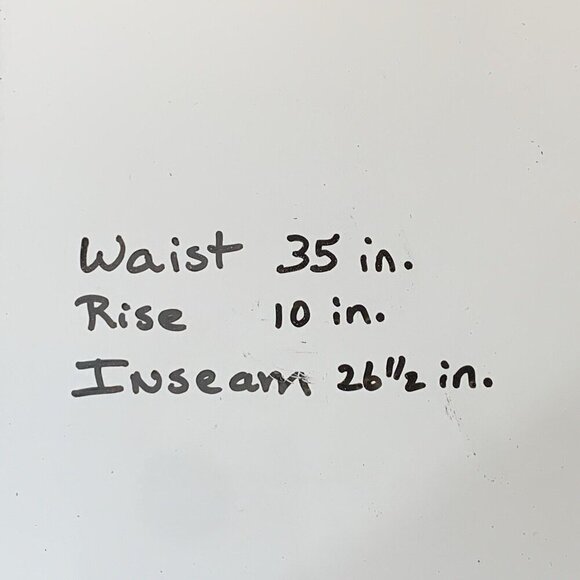 Waist 35 in.
Rise 10 in.
Inseam 26 1/2 in.